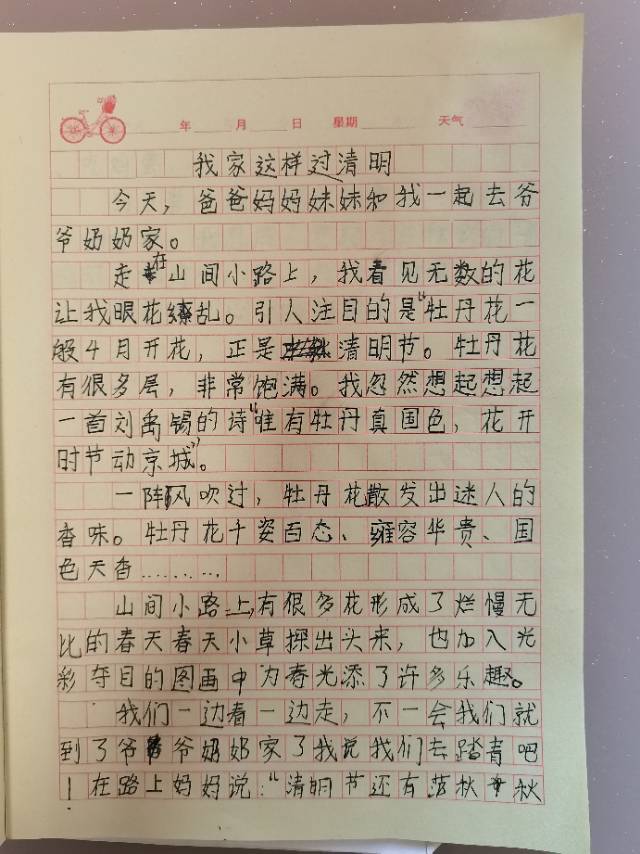 年 月 日 星期 天气
我家这样过清明
今天，爸爸妈妈妹妹和我一起去爷
爷奶奶家。
走在山间小路上，我看见无数的花
让我眼花缭乱。引人注目的是“牡丹花一
般4月开花，正是清明节。牡丹花
有很多层，非常饱满。我忽然想起想起
一首刘禹锡的诗“唯有牡丹真国色，花开
时节动京城”。
一阵风吹过，牡丹花散发出迷人的
香味。牡丹花千姿百态、雍容华贵、国
色天香………
山间小路上，有很多花形成了烂慢无
比的春天春天小草探出头来，也加入光
彩夺目的图画中为春光添了许多乐趣。
我们一边看一边走，不一会我们就
到了爷爷奶奶家了我说我们去踏青吧
！在路上妈妈说：“清明节还有荡秋秋